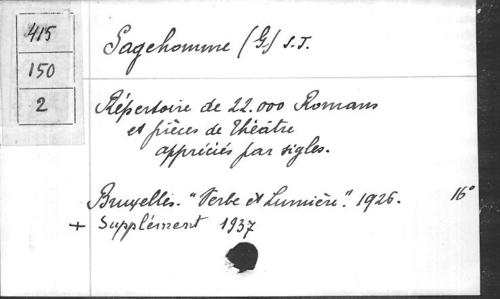 415
150
2
Sagehomme (G) S.J.
Répertoire de 22.000 Romans
et pièces de Théâtre
appréciés par sigles.
Bruxelles. "Verbe et Lumière". 1926. 16°
+ Supplément 1937